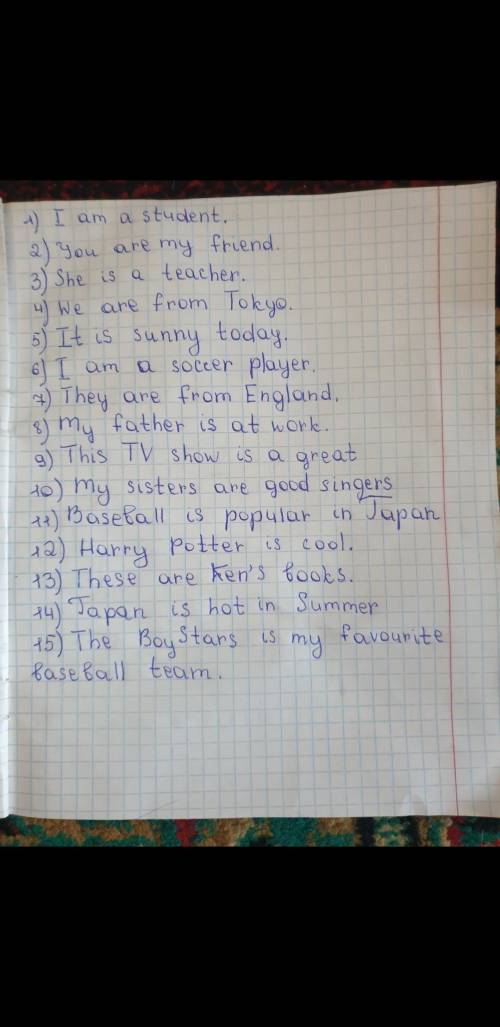 1) I am a student.
2) You are my friend.
3) She is a teacher.
4) We are from Tokyo.
5) It is sunny today.
6) I am a soccer player.
7) They are from England.
8) My father is at work.
9) This TV show is a great
10) My sisters are good singers
11) Baseball is popular in Japan
12) Harry Potter is cool.
13) These are Ken's books.
14) Japan is hot in Summer
15) The Boy Stars is my favourite
baseball team.